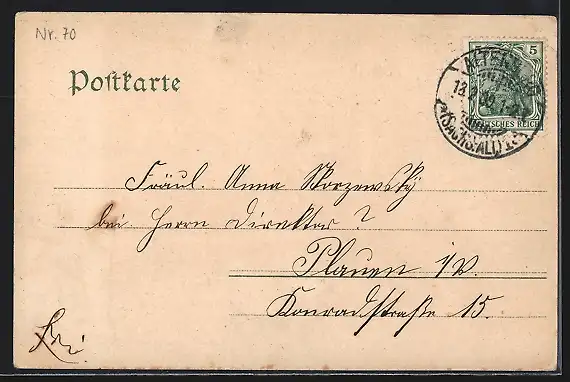 Nr. 70
Postkarte
5
DEUTSCHES REICH
ALTENBURG
(SACHS. ALT.)
Fräul. Anna Skorzewsky
bei Herrn Direktor ?
Plauen i/V.
Konradstraße 15.
Frei.